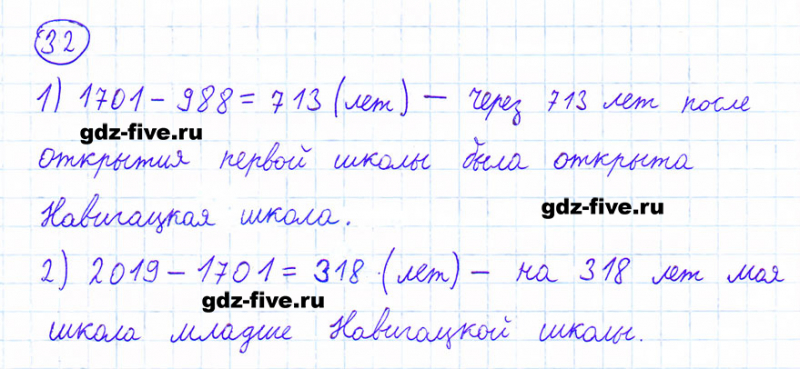 32
1) 1701 - 988 = 713 (лет) - через 713 лет после
gdz-five.ru
открытия первой школы была открыта
gdz-five.ru
Навигацкая школа.
2) 2019 - 1701 = 318 (лет) - на 318 лет моя
gdz-five.ru
школа младше Навигацкой школы.